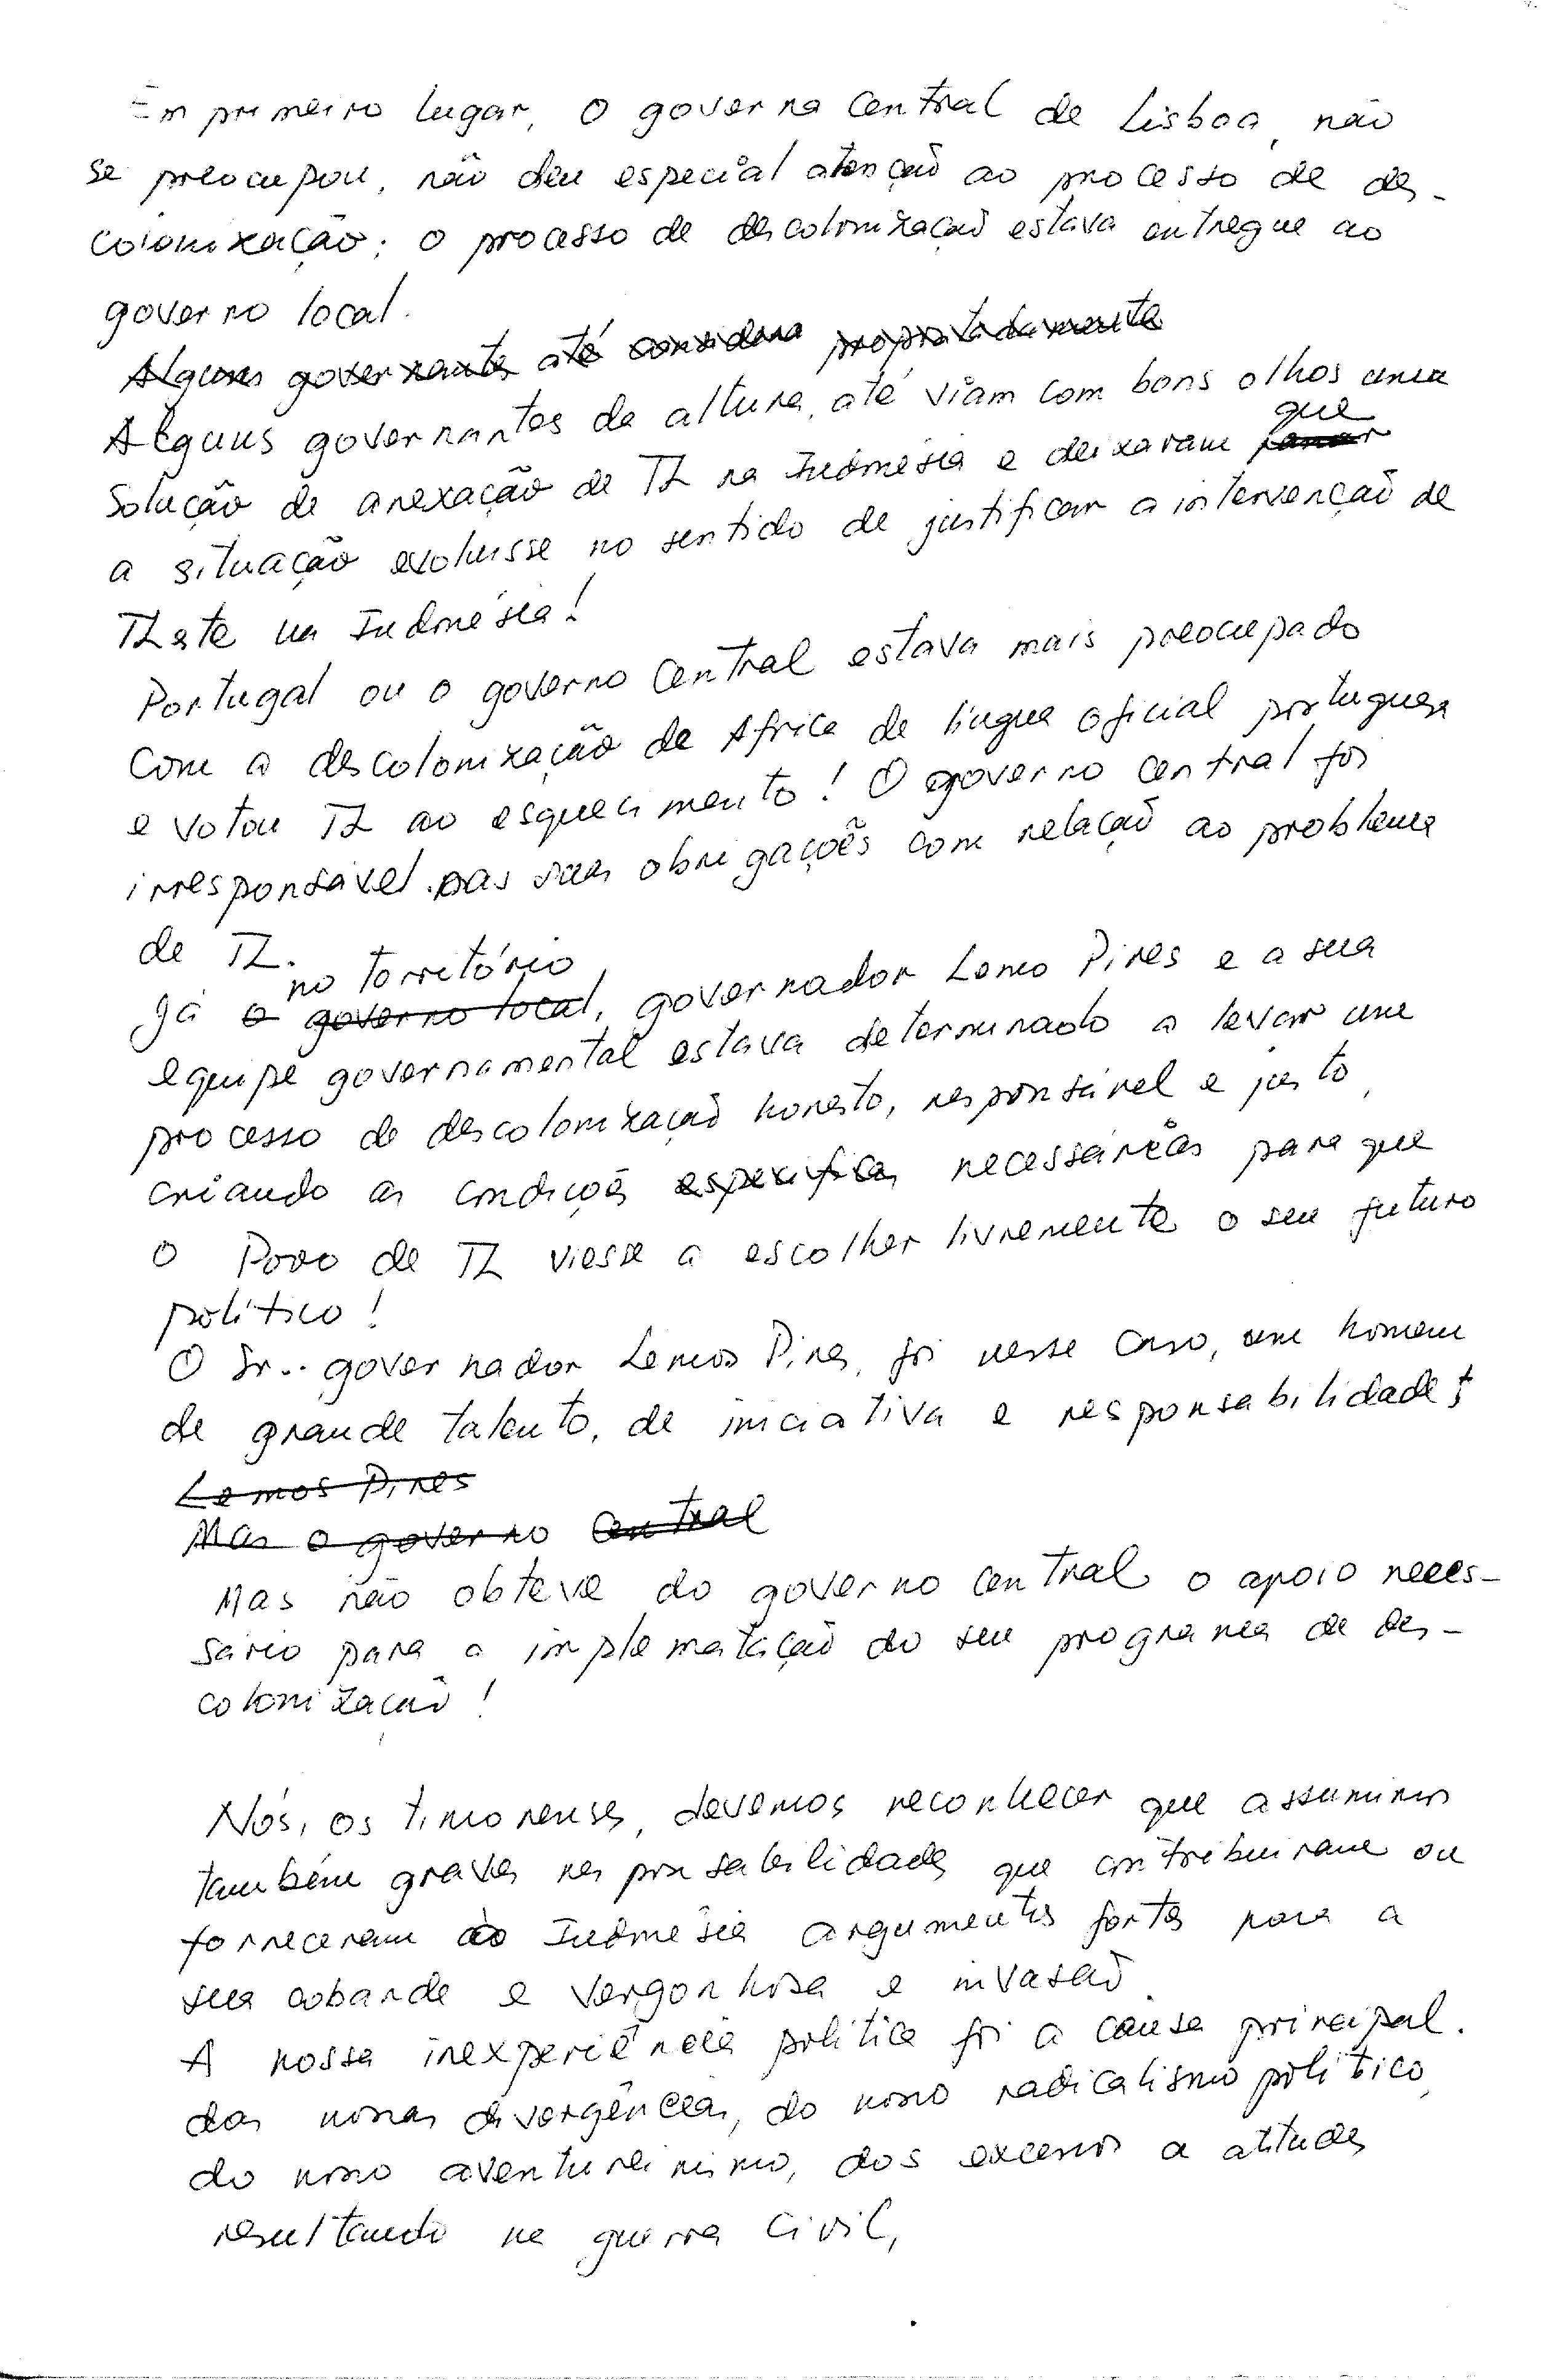 Em primeiro lugar, o governo central de Lisboa, não
se preocupou, não deu especial atenção ao processo de des-
colonização; o processo de descolonização estava entregue ao
governo local.
Alguns governantes até considera
Alguns governantes da altura, até viam com bons olhos uma
que
solução de anexação de TL na Indonésia e deixaram
a situação evoluisse no sentido de justificar a intervenção de
na Indonésia!
Portugal ou o governo central estava mais preocupado
com a descolonização de Africa de língua oficial portuguesa
e votou TL ao esquecimento! O governo central foi
irresponsável nas suas obrigações com relação ao problema
de TL.
no território
Já o governo local, governador Lemos Pires e a sua
equipe governamental estava determinado a levar um
processo de descolonização honesto, responsável e justo,
criando as condições especificas necessárias para que
o Povo de TL viesse a escolher livremente o seu futuro
político!
O Sr. governador Lemos Pires, foi nesse caso, um homem
de grande talento, de iniciativa e responsabilidade!
Lemos Pires
Mas o governo central
Mas não obteve do governo central o apoio neces-
sário para a implematação do seu programa de des-
colonização!
Nós, os timorenses, devemos reconhecer que assumimos
também graves responsabilidades que contribuiram ou
forneceram à Indonésia argumentos fortes para a
sua cobarde e vergonhosa e invasão.
A nossa inexperiência política foi a causa principal.
das nossas divergências, do nosso radicalismo político,
do nosso aventureirismo, dos excessos a atitudes
resultando na guerra civil,